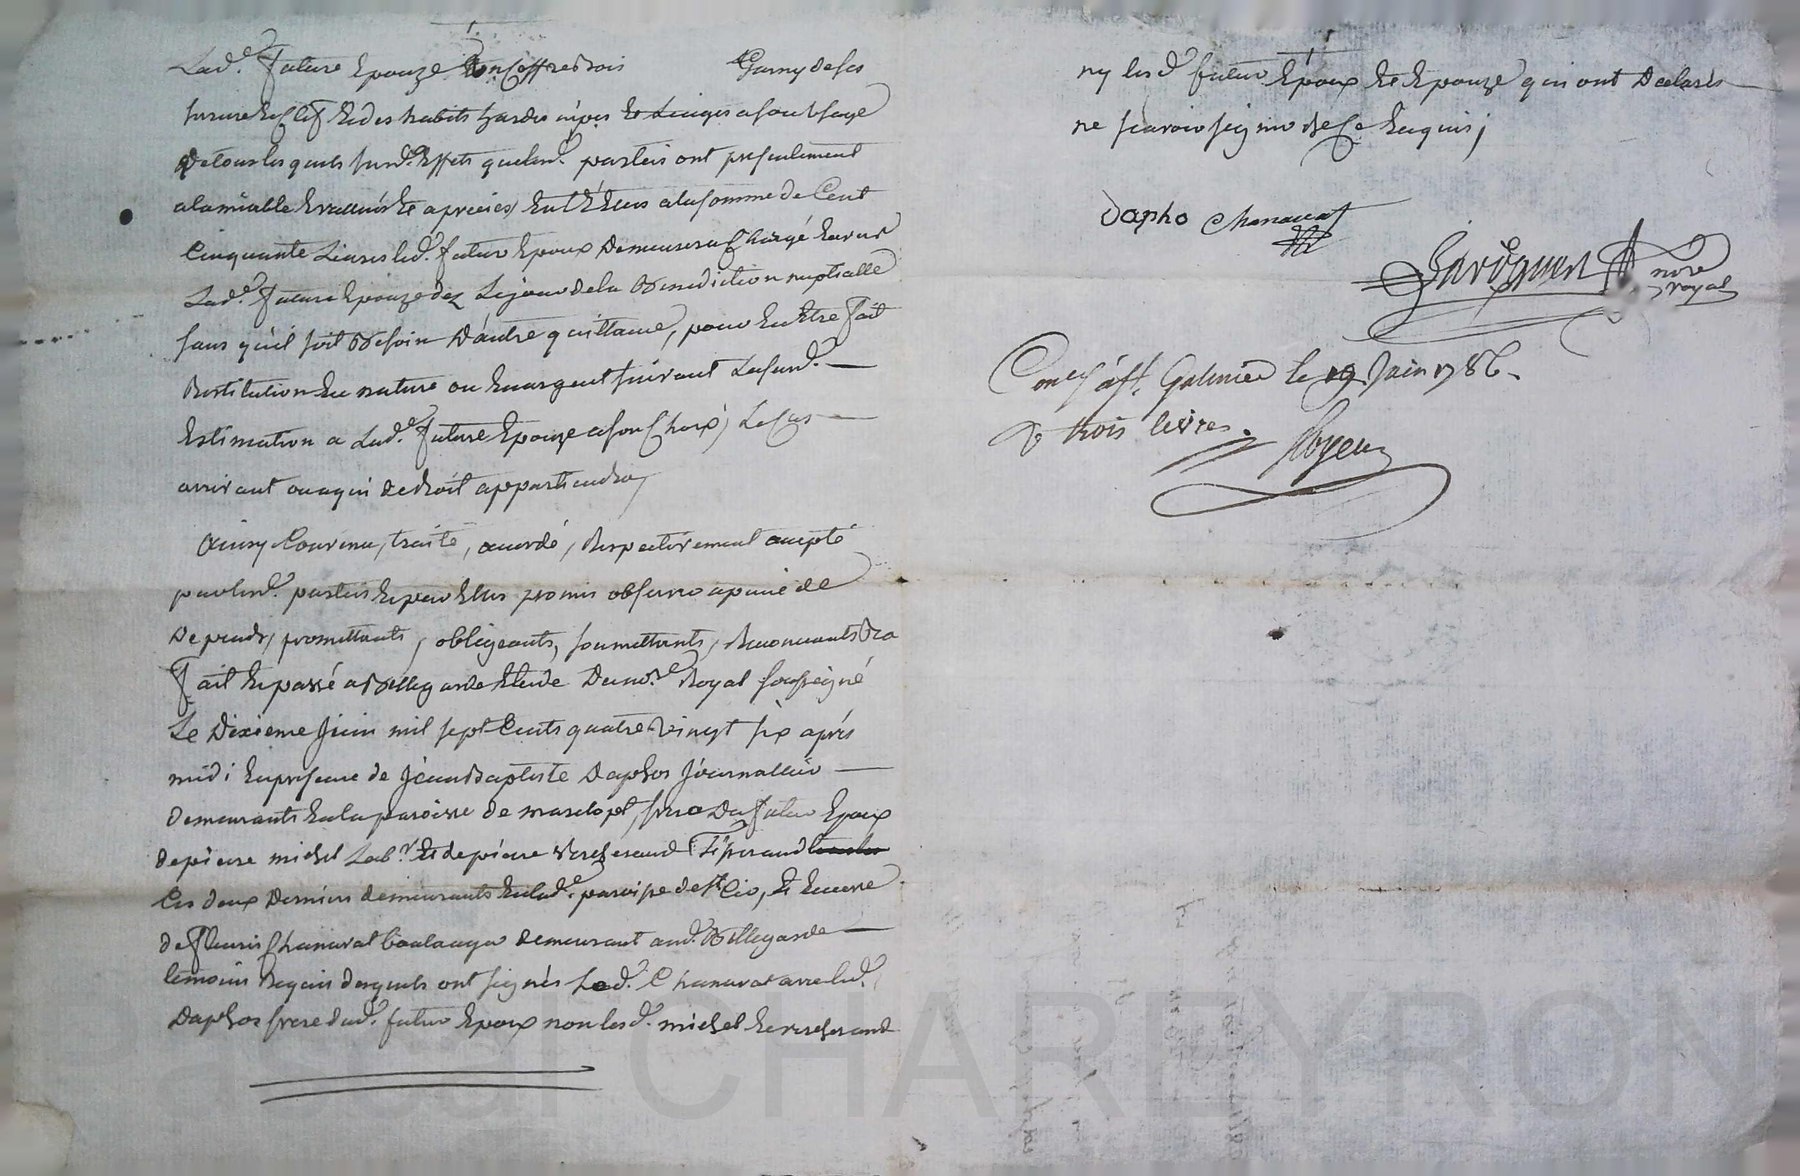 Lad.e future Epouze un Coffre bois Garny de sa
serrure et Clef et des habits hardes nipes et Linges a son Usage
De tous lesquels susd. Effets quelesd. parties ont presentement
alamiable Evalluès et apreciés Ent'Elles a la somme de Cent
Cinquante Livres led. futur Epoux Demeurera Chargé Envers
Lad.e future Epouze dez Le jour de la Benediction nuptialle
sans qu'il soit Besoin D'autre quittance, pour En Etre fait
Restitution En nature ou En argent suivant La susd.
Estimation a Lad.e future Epouze a son Choix, Le Cas
arrivant ou a qui de droit appartiendra,
Ainsy Convenu, traité, accordé, Respectivement accepté
par lesd. parties Et par Elles promis observer a peine de
Depends, promettants, obligeants, soumettants, Renonceants &ca
Fait Et passé a Bellegarde Etude Du no.re Royal soussigné
Le Dixieme Juin mil sept Cents quatre Vingt six après
midi En presence de Jean Baptiste Daphos Journallier
demeurants En la paroisse de marclopt, frere Du futur Epoux
de pierre michel Lab.r Et de pierre Vercherand Tisserand
Ces deux Derniers demeurants En lad.e paroisse de St Cir, Et Encore
de Fleuris Chanavat boulanger demeurant aud. Bellegarde
temoins Requis desquels ont signés Led. Chanavat avec led.
Daphos frere dud. futur Epoux non lesd. michel Et vercherand
ny lesd. futur Epoux Et Epouze qui ont Declarés
ne scavoir signer de Ce Enquis,
Dapho Chanavat
nore
royal
Con.lé à St. Galmier le 19 Juin 1786
R trois livres.